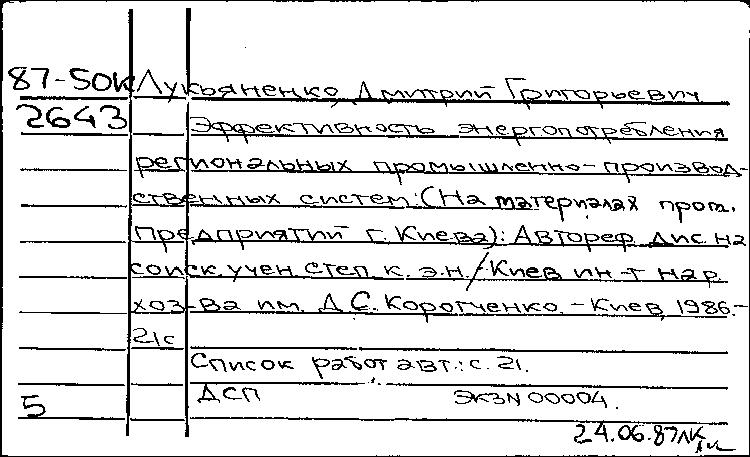 87-50к Лукьяненко, Дмитрий Григорьевич
2643 Эффективность энергопотребления
региональных промышленно-производ-
ственных систем: (На материалах пром.
предприятий г. Киева): Автореф. дис. на
соиск. учен. степ. к. э.н. / Киев. ин-т нар.
хоз-ва им. Д.С. Коротченко. - Киев, 1986.-
21с
Список работ авт.: с. 21.
ДСП ЭКЗ N 00004.
5
24.06.87